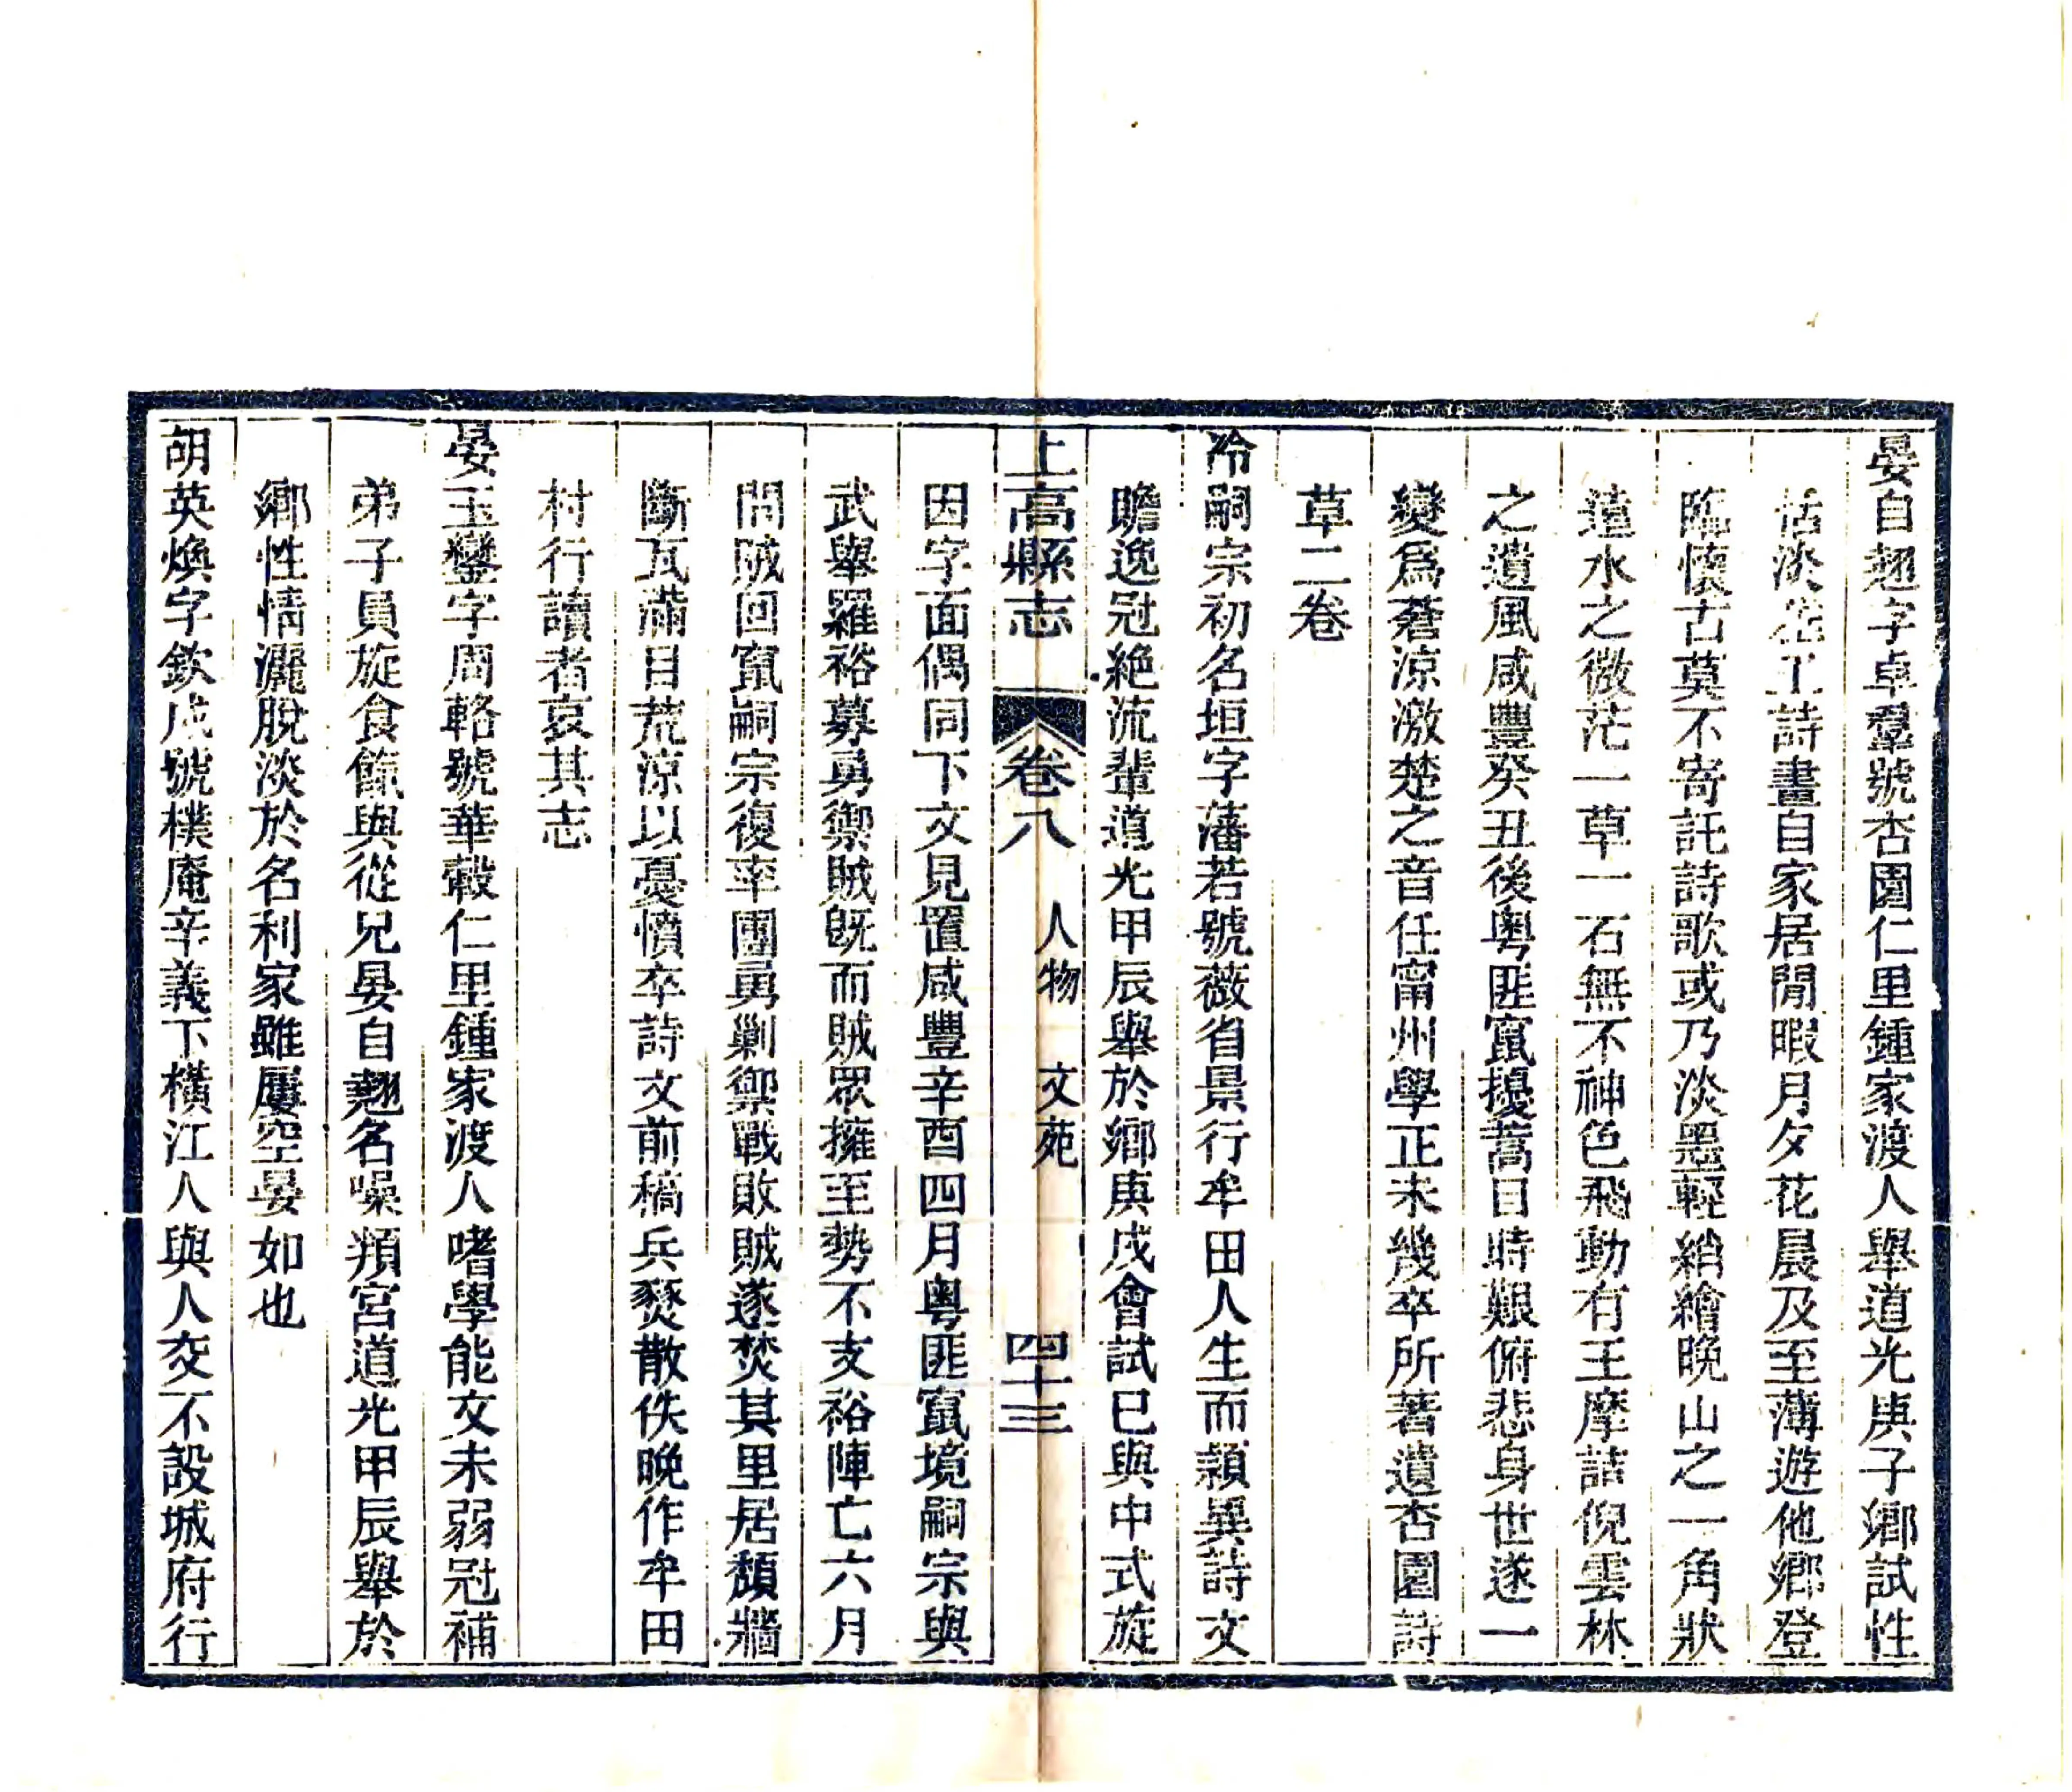 晏自翹字卓羣號杏園仁里鍾家渡人舉道光庚子鄉試性
恬淡工詩畫自家居閒暇月夕花晨及至薄遊他鄉登
臨懷古莫不寄託詩歌或乃淡墨輕綃繪晚山之一角狀
遠水之微茫一草一石無不神色飛動有王摩詰倪雲林
之遺風咸豐癸丑後粵匪竄擾蒿目時艱俯悲身世遂一
變爲蒼涼激楚之音任甯州學正未幾卒所著遺杏園詩
草二卷
冷嗣宗初名垣字藩若號薇省景行牟田人生而穎異詩文
瞻逸冠絶流輩道光甲辰舉於鄉庚戌會試已與中式旋
上高縣志 卷八 人物 文苑 四十三
因字面偶同下文見置咸豐辛酉四月粵匪竄境嗣宗與
武舉羅裕募勇禦賊旣而賊眾擁至勢不支裕陣亡六月
間賊回竄嗣宗復率團勇剿禦戰敗賊遂焚其里居頹牆
斷瓦滿目荒涼以憂憤卒詩文前稿兵燹散佚晚作牟田
村行讀者哀其志
晏玉鑾字周輅號華轂仁里鍾家渡人嗜學能文未弱冠補
弟子員旋食餼與從兄晏自翹名噪頖宮道光甲辰舉於
鄉性情灑脫淡於名利家雖屢空晏如也
胡英煥字欽成號樸庵辛義下橫江人與人交不設城府行